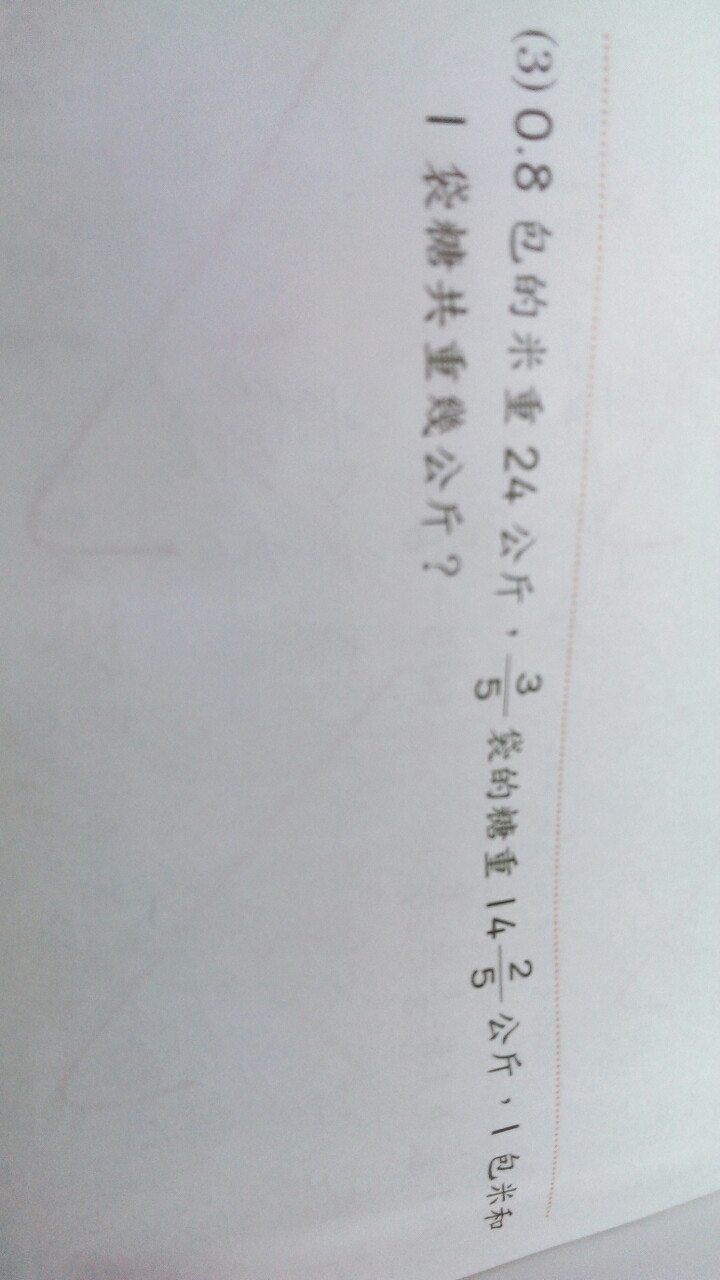 (3) 0.8 包的米重 24 公斤，3/5 袋的糖重 14 2/5 公斤，1 包米和
1 袋糖共重幾公斤？